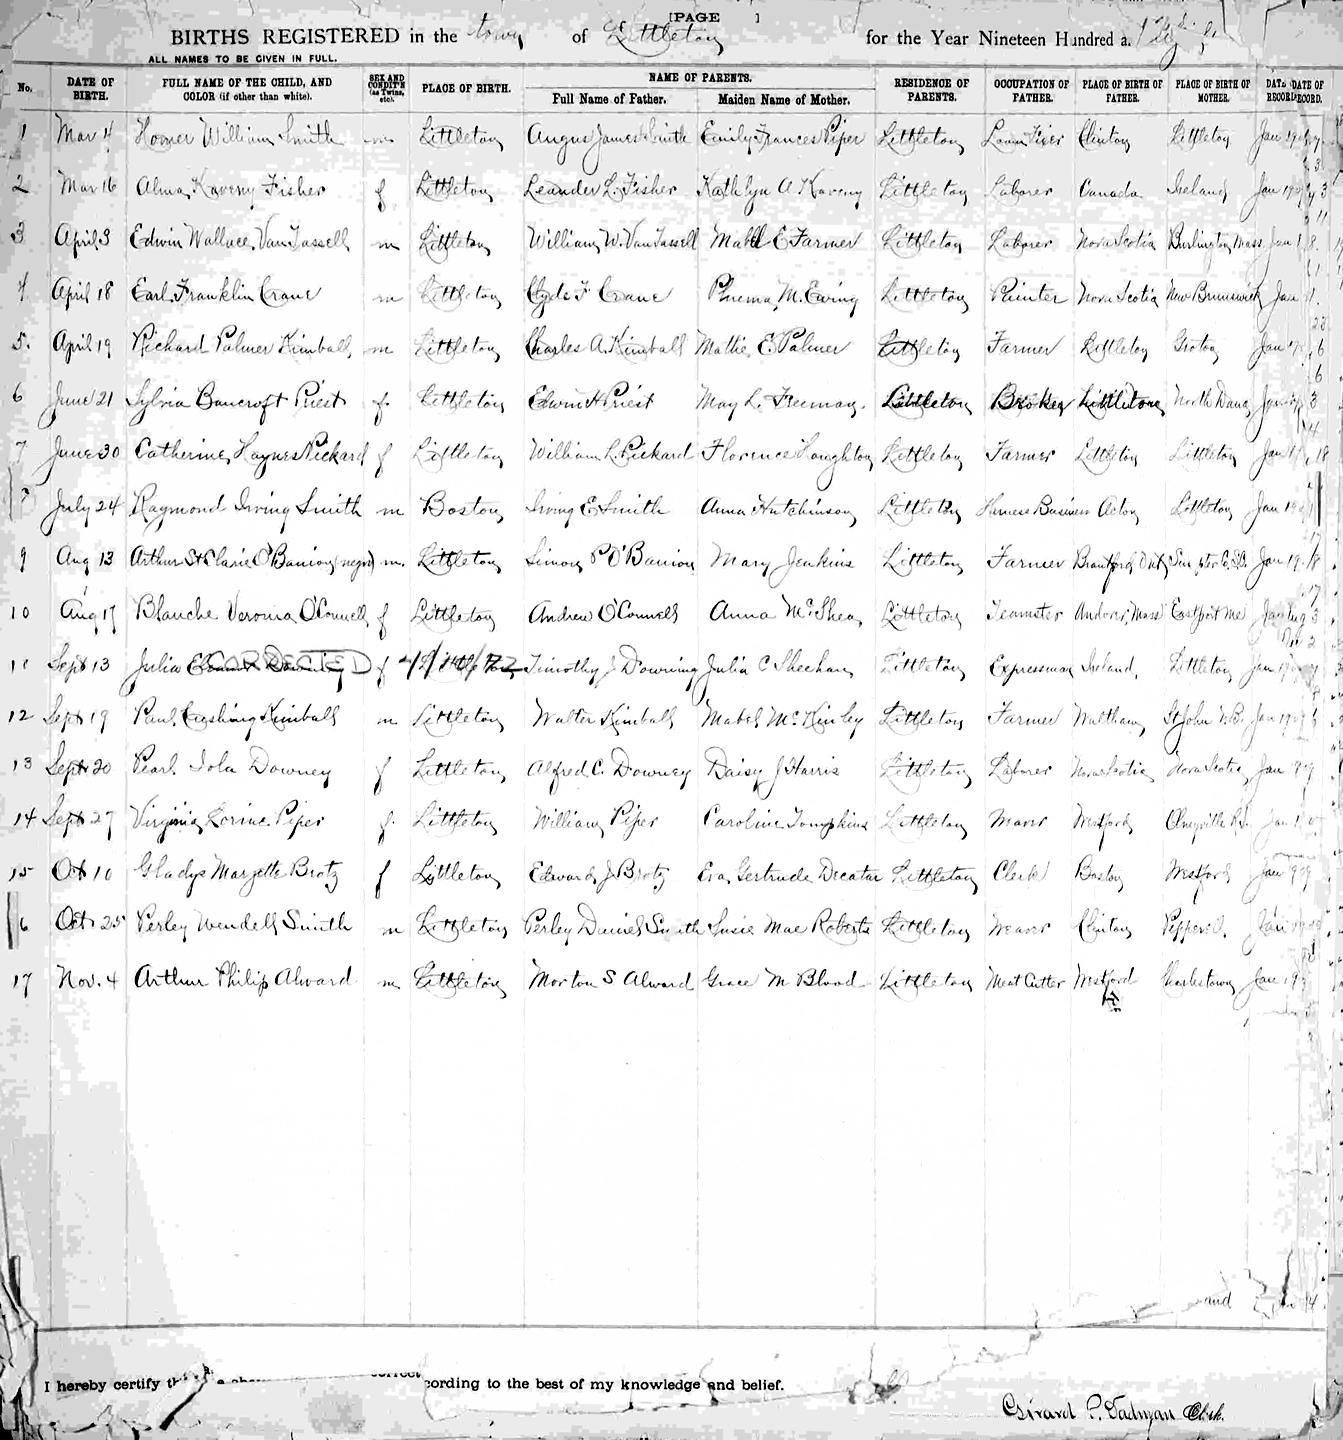 [PAGE ]
BIRTHS REGISTERED in the town of Littleton for the Year Nineteen Hundred a.
ALL NAMES TO BE GIVEN IN FULL.
No. DATE OF BIRTH. FULL NAME OF THE CHILD, AND COLOR (if other than white). SEX AND CONDIT'N (as Twins, etc). PLACE OF BIRTH. NAME OF PARENTS. Full Name of Father. Maiden Name of Mother. RESIDENCE OF PARENTS. OCCUPATION OF FATHER. PLACE OF BIRTH OF FATHER. PLACE OF BIRTH OF MOTHER. DATE OF RECORD.
1 Mar 4 Homer William Smith m Littleton Angus James Smith Emily Frances Piper Littleton Loom Fixer Clinton Littleton Jan 19
2 Mar 16 Alma Kaveny Fisher f Littleton Leander L. Fisher Kathlyn A Kaveny Littleton Laborer Canada Ireland Jan 19
3 April 3 Edwin Wallace VanTassell m Littleton William W. VanTassell Mabel E Farmer Littleton Laborer Nova Scotia Burlington Mass Jan
4 April 18 Earl Franklin Crane m Littleton Clyde F Crane M. Ewing Littleton Painter Nova Scotia New Brunswick Jan
5. April 19 Richard Palmer Kimball m Littleton Charles A. Kimball Mattie E. Palmer Littleton Farmer Littleton Groton Jan
6 June 21 Sylvia Bancroft Priest f. Littleton Edwin H Priest May L. Freeman. Littleton Broker Littleton North Dana
7 June 30 Catherine Haynes Pickard f Littleton William L. Pickard Florence Houghton Littleton Farmer Littleton Littleton Jan
July 24 Raymond Irving Smith m Boston Irving E Smith Anna Hutchinson Littleton Harness Business Acton Littleton Jan 19
9 Aug 13 Arthur St Clarie O'Banion (negro) m. Littleton Simon P O'Banion Mary Jenkins Littleton Farmer Brantford Ont Jan 19
10 Aug 17 Blanche Veronia O'Connell f Littleton Andrew O'Connell Anna McShea Littleton Teamster Andover, Mass Eastport Me
11 Sept 13 Julia CORRECTED f Timothy J Downing Julia C Sheehan Littleton Expressman Ireland, Littleton Jan 19
12 Sept 19 Paul Cushing Kimball m Littleton Walter Kimball Mabel McKinley Littleton Farmer Waltham St John N.B. Jan 19
13 Sept 20 Pearl Iola Downey f Littleton Alfred C. Downey Daisy J Harris Littleton Laborer Nova Scotia Nova Scotia Jan 19
14 Sept 27 Virginia Piper f. Littleton William Piper Caroline Tompkins Littleton Westford Olneyville R.I. Jan
15 Oct 10 Gladys Brotz f Littleton Edward J Brotz Eva Gertrude Decatur Littleton Clerk Boston Westford Jan
6 Oct 25 Perley Wendell Smith m Littleton Perley Daniel Smith Susie Mae Roberts Littleton Weaver Clinton Jan
17 Nov. 4 Arthur Philip Alward m Littleton Morton S Alward Grace M Blood Littleton Meat Cutter Westford Charlestown Jan 19
and
I hereby certify cording to the best of my knowledge and belief.
Clerk.